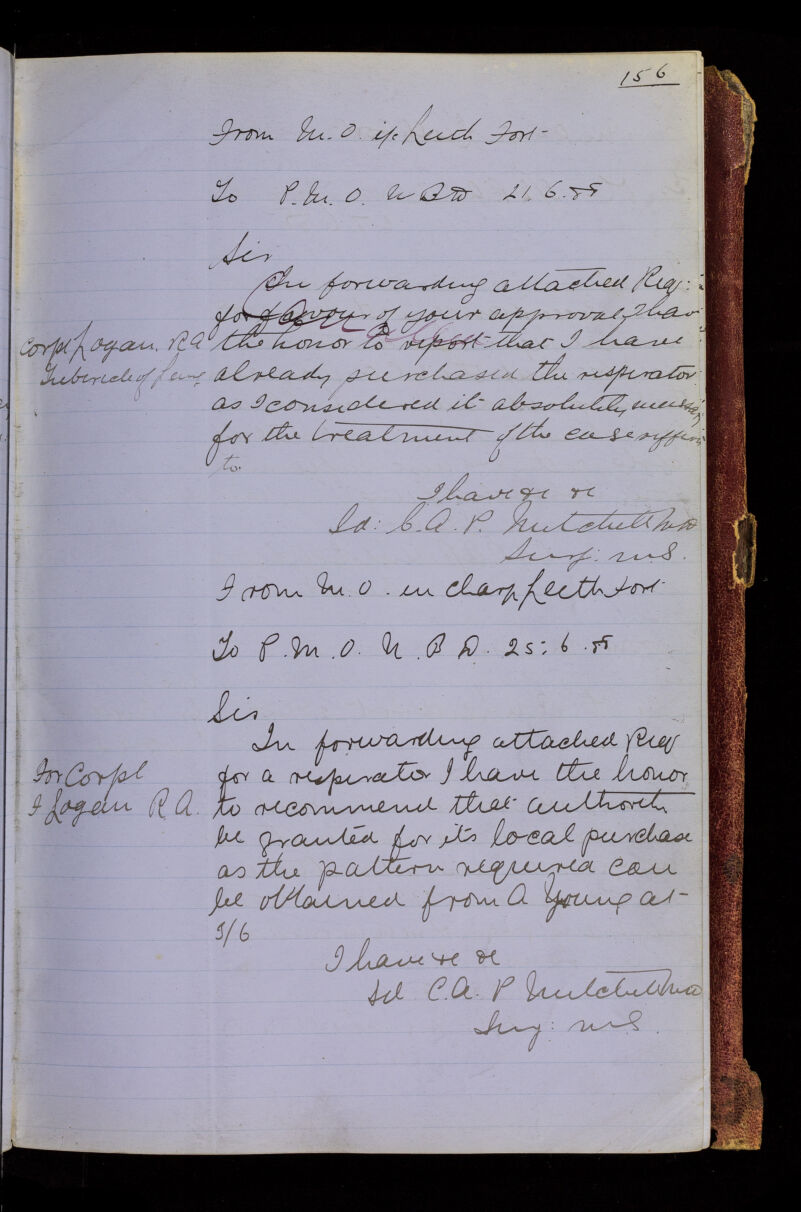 156
From M. O. i/c Leith Fort
To P. M. O. N B D 21. 6. 88
Sir
In forwarding attached Req:
for favour of your approval I hav
Corpl Logan. R A
the honor to report that I have
already purchased the respirator
as I considered it absolutely
for the treatment of the case
to.
I have &c &c
Sd: C. A. P. Mitchell MD
Surg: M.S.
From M. O. in charge Leith Fort
To P. M. O. N. B D. 25: 6. 88
Sir
In forwarding attached Req
For Corpl
I Logan R A.
for a respirator I have the honor
to recommend that authority
be granted for its local purchase
as the pattern required can
be obtained from A Young at
3/6
I have &c &c
Sd C. A. P Mitchell MD
Surg: M S.